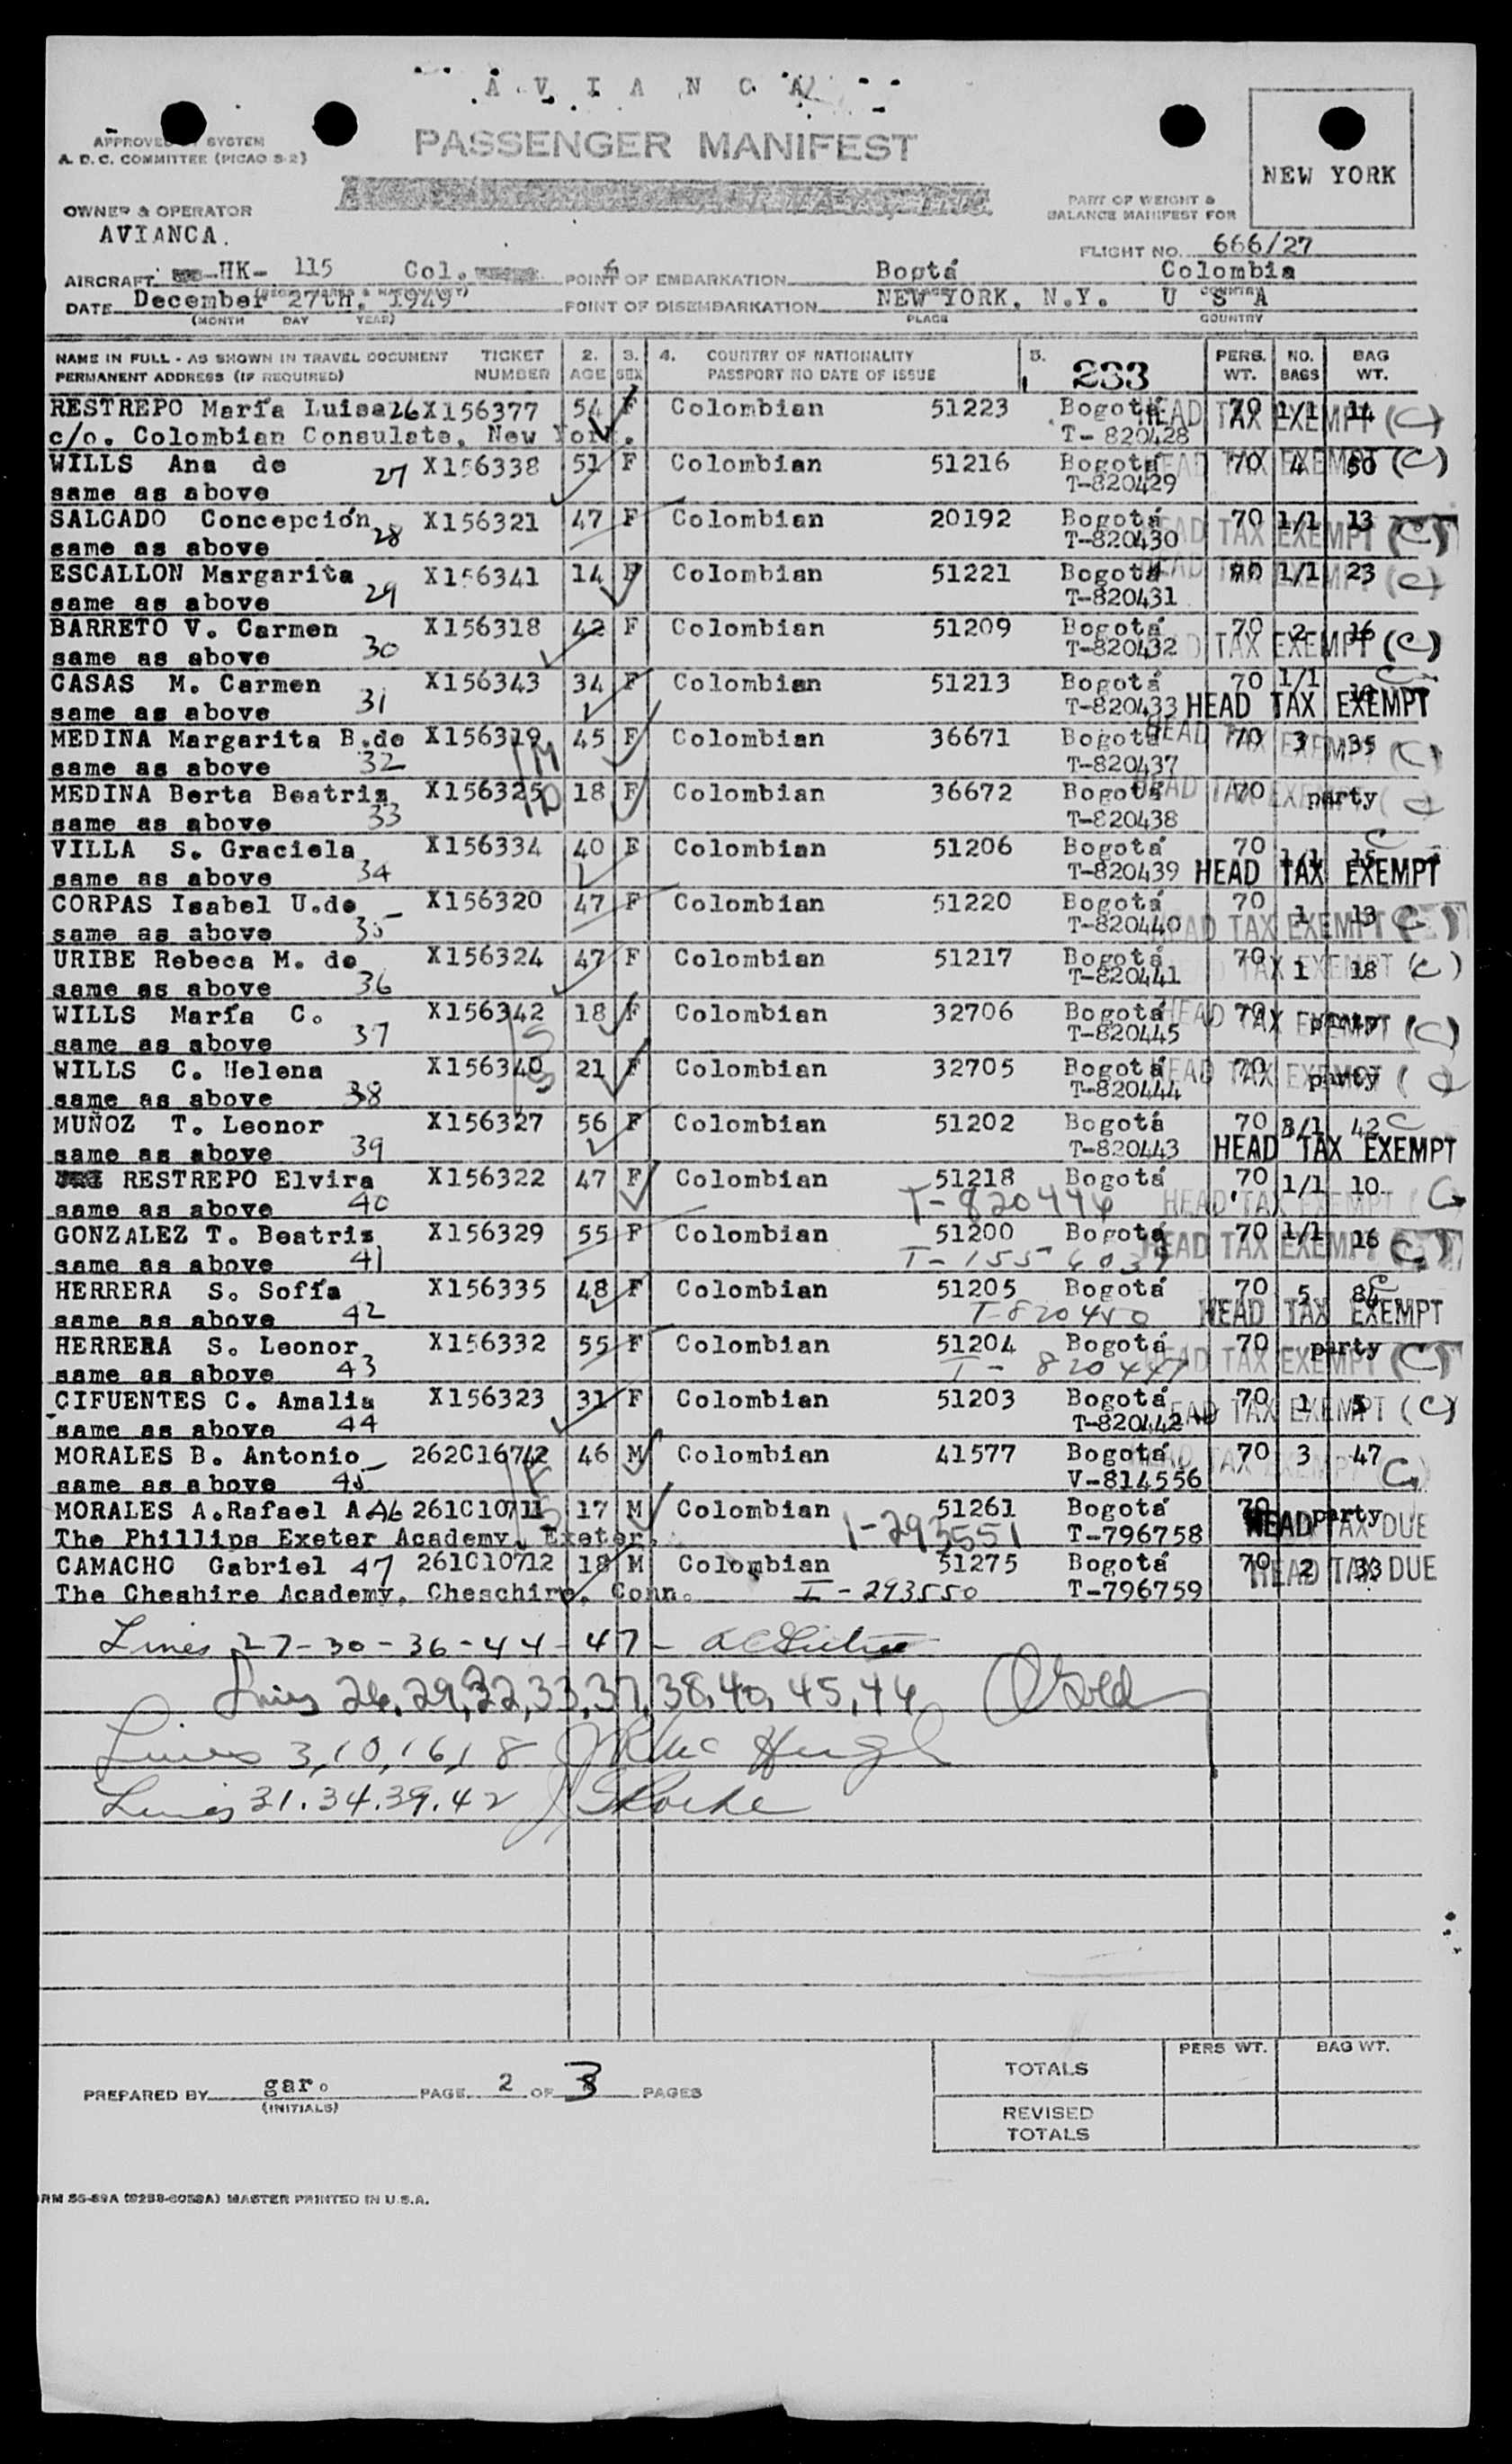 A V I A N C A
APPROVED SYSTEM
A. D. C. COMMITTEE (PICAO S-2)
PASSENGER MANIFEST
NEW YORK
OWNER & OPERATOR
AVIANCA.
PART OF WEIGHT &
BALANCE MANIFEST FOR
FLIGHT NO. 666/27
AIRCRAFT HK- 115 Col. POINT OF EMBARKATION Bogtá Colombia
DATE December 27th, 1949 POINT OF DISEMBARKATION NEW YORK, N.Y. U S A
(MONTH DAY YEAR) PLACE COUNTRY
NAME IN FULL - AS SHOWN IN TRAVEL DOCUMENT TICKET 2. 3. 4. COUNTRY OF NATIONALITY 5. 233 PERS. NO. BAG
PERMANENT ADDRESS (IF REQUIRED) NUMBER AGE SEX PASSPORT NO DATE OF ISSUE WT. BAGS WT.
RESTREPO María Luisa 26 X156377 54 F Colombian 51223 Bogotá HEAD TAX EXEMPT (C) 70 1/1 14
c/o. Colombian Consulate, New York. T-820428
WILLS Ana de 27 X156338 51 F Colombian 51216 Bogotá HEAD TAX EXEMPT (C) 70 4 50
same as above T-820429
SALGADO Concepción 28 X156321 47 F Colombian 20192 Bogotá 70 1/1 13
same as above T-820430 HEAD TAX EXEMPT (C)
ESCALLON Margarita 29 X156341 14 F Colombian 51221 Bogotá HEAD TAX EXEMPT (C) 70 1/1 23
same as above T-820431
BARRETO V. Carmen 30 X156318 42 F Colombian 51209 Bogotá 70 2 16
same as above T-820432 HEAD TAX EXEMPT (C)
CASAS M. Carmen 31 X156343 34 F Colombian 51213 Bogotá 70 1/1 C
same as above T-820433 HEAD TAX EXEMPT
MEDINA Margarita B.de 32 X156319 45 F Colombian 36671 Bogotá HEAD TAX EXEMPT (C) 70 3 35
same as above T-820437
MEDINA Berta Beatriz 33 X156325 18 F Colombian 36672 Bogotá HEAD TAX EXEMPT 70 party
same as above T-820438
VILLA S. Graciela 34 X156334 40 F Colombian 51206 Bogotá 70 1/1 15 C
same as above T-820439 HEAD TAX EXEMPT
CORPAS Isabel U.de 35 X156320 47 F Colombian 51220 Bogotá 70 1 13
same as above T-820440 HEAD TAX EXEMPT
URIBE Rebeca M. de 36 X156324 47 F Colombian 51217 Bogotá 70 1 18
same as above T-820441 HEAD TAX EXEMPT (C)
WILLS María C. 37 X156342 18 F Colombian 32706 Bogotá HEAD TAX EXEMPT (C) 70 party
same as above T-820445
WILLS C. Helena 38 X156340 21 F Colombian 32705 Bogotá HEAD TAX EXEMPT 70 party
same as above T-820444
MUÑOZ T. Leonor 39 X156327 56 F Colombian 51202 Bogotá 70 3/1 42 C
same as above T-820443 HEAD TAX EXEMPT
RESTREPO Elvira 40 X156322 47 F Colombian 51218 Bogotá 70 1/1 10
same as above T-820446 HEAD TAX EXEMPT
GONZALEZ T. Beatriz 41 X156329 55 F Colombian 51200 Bogotá HEAD TAX EXEMPT 70 1/1 16
same as above
HERRERA S. Sofía 42 X156335 48 F Colombian 51205 Bogotá 70 5 84 C
same as above HEAD TAX EXEMPT
HERRERA S. Leonor 43 X156332 55 F Colombian 51204 Bogotá 70 party
same as above T-820447 HEAD TAX EXEMPT (C)
CIFUENTES C. Amalia 44 X156323 31 F Colombian 51203 Bogotá 70 1 5
same as above T-820442 HEAD TAX EXEMPT (C)
MORALES B. Antonio 45 262C16742 46 M Colombian 41577 Bogotá 70 3 47
same as above V-814556
MORALES A.Rafael A. 46 261C10711 17 M Colombian 51261 Bogotá 70 party
The Phillips Exeter Academy, Exeter. I-293551 T-796758 HEAD TAX DUE
CAMACHO Gabriel 47 261C10712 18 M Colombian 51275 Bogotá 70 2 33 HEAD TAX DUE
The Cheshire Academy, Cheschire, Conn. I-293550 T-796759
Lines 27-30-36-44-47-
Lines 26,29,32,33,37,38,40,45,46 Gold
Lines 3,10,16,18 Mc Hugh
Lines 31.34.39.42 Roche
TOTALS PERS WT. BAG WT.
PREPARED BY gar. PAGE 2 OF 3 PAGES
(INITIALS)
REVISED
TOTALS
MASTER PRINTED IN U.S.A.